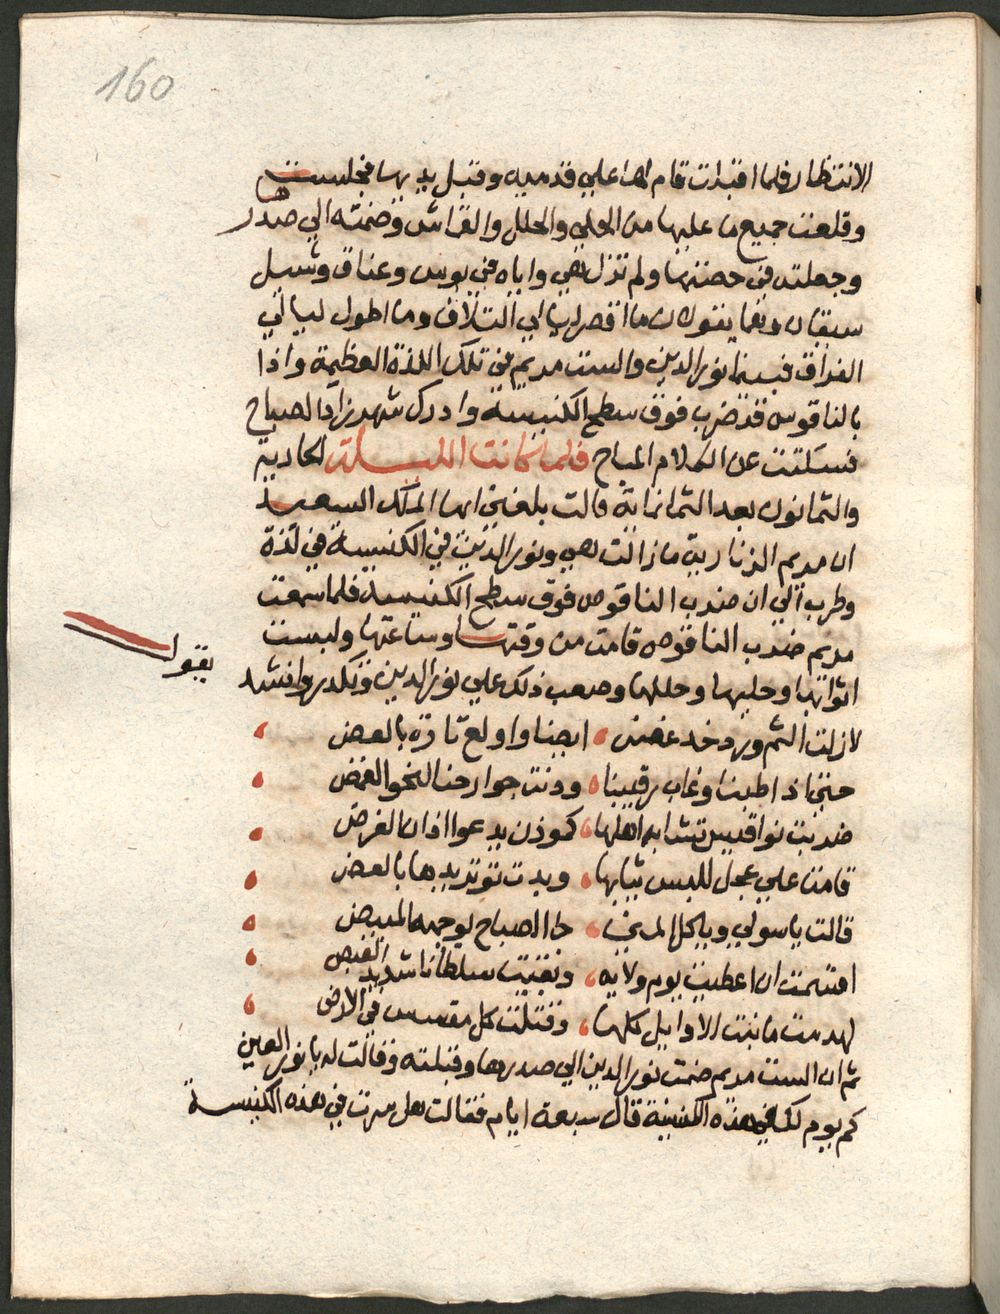 160
الانتظار فلما اقبلت قام لها علي قدميه وقبل يديها فجلست
وقلعت جميع ما عليها من الحلي والحلل والقماش وضمته الي صدرها
وجعلته في حضنها ولم تزل هي واياه في بوس وعناق وشبل
سيقان وهما يقولان ما اقصر ليالي التلاق وما اطول ليالي
الفراق فبينما نور الدين والست مريم في تلك اللذة العظيمة واذا
بالناقوس قد ضرب فوق سطح الكنيسة وادرك شهرزاد الصباح
فسكتت عن الكلام المباح فلما كانت الليلة الحادية
والثمانون بعد الثمانماية قالت بلغني ايها الملك السعيد
ان مريم الزنارية ما زالت هي ونور الدين في الكنيسة في لذة
وطرب الي ان ضرب الناقوس فوق سطح الكنيسه فلما سمعت
مريم ضرب الناقوس قامت من وقتها وساعتها ولبست
اثوابها وحليها وحللها وصعب ذلك علي نور الدين وتكدر وانشد
يقول
لازلت الثم ورد خد غض ، ايضا واولع تارة بالعض ،
حتي اذا طبنا وغاب رقيبنا ، ودنت جوارحنا لنحو الغمض ،
ضربت نواقيس تشابه اهلها ، كموذن يدعوا اذان الفرض ،
قامت علي عجل للبس ثيابها ، وبدت بالعض ،
قالت يا سولي ويا كل المني ، جا الصباح بوجهه المبيض ،
اقسمت ان اعطيت يوم ولايه ، وبقيت سلطانا شديد القبض ،
لهدمت ما بنت الاوايل كلها ، وقتلت كل مقسس في الارض ،
ثم ان الست مريم ضمت نور الدين الي صدرها وقبلته وقالت له يا نور العين
كم يوم لك في هذه الكنيسة قال سبعة ايام فقالت هل سرت في هذه الكنيسة